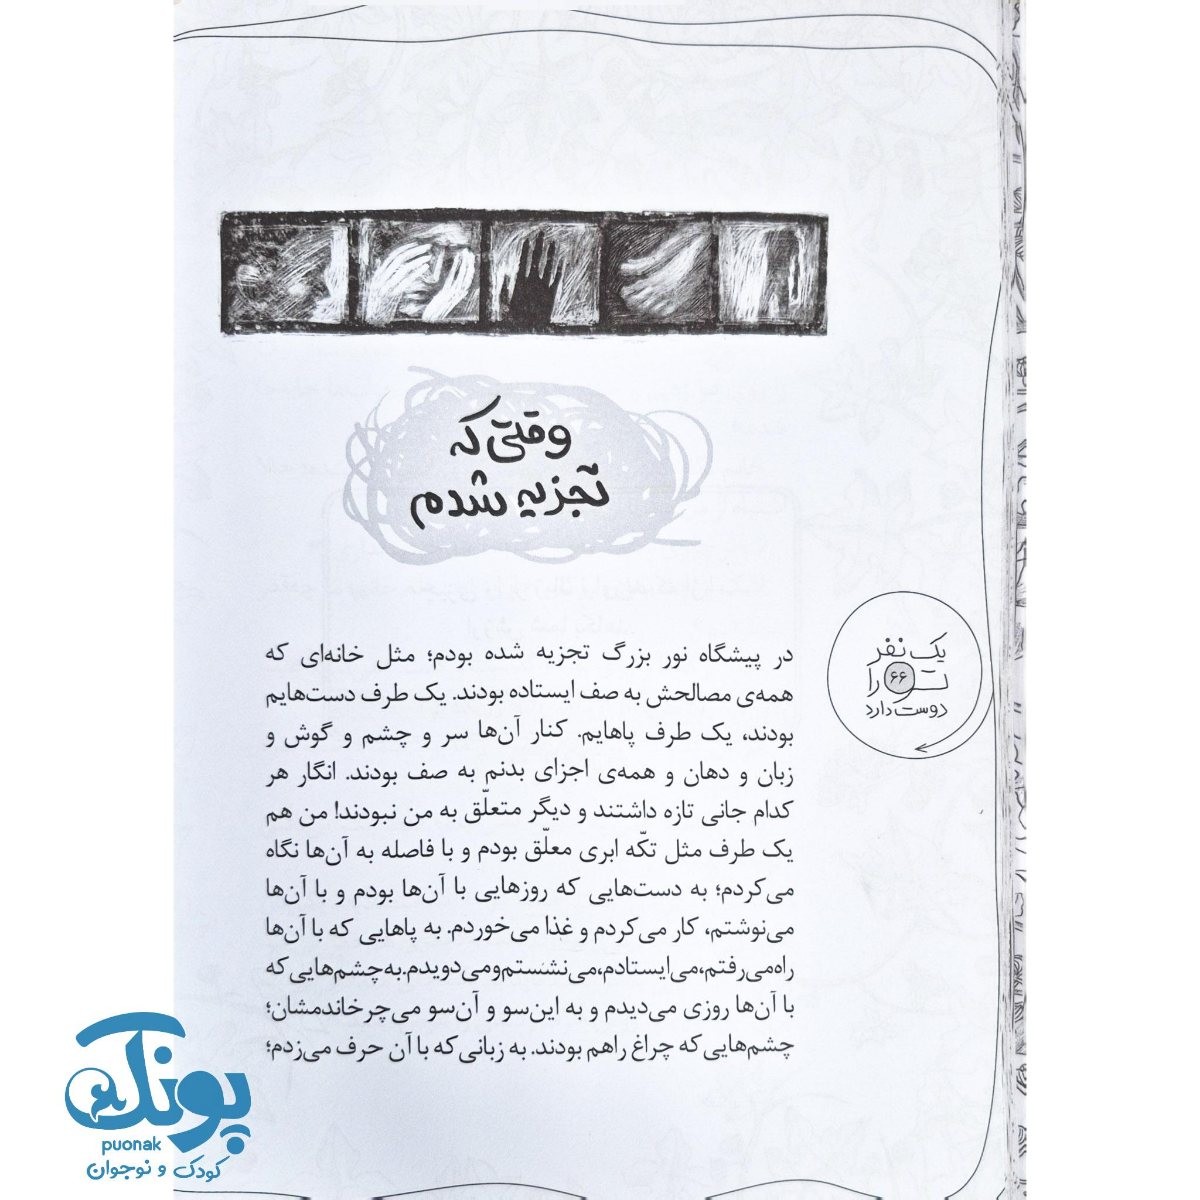 وقتی که
تجزیه شدم
در پیشگاه نور بزرگ تجزیه شده بودم؛ مثل خانه‌ای که
همه‌ی مصالحش به صف ایستاده بودند. یک طرف دست‌هایم
بودند، یک طرف پاهایم. کنار آن‌ها سر و چشم و گوش و
زبان و دهان و همه‌ی اجزای بدنم به صف بودند. انگار هر
کدام جانی تازه داشتند و دیگر متعلّق به من نبودند! من هم
یک طرف مثل تکّه ابری معلّق بودم و با فاصله به آن‌ها نگاه
می‌کردم؛ به دست‌هایی که روزهایی با آن‌ها بودم و با آن‌ها
می‌نوشتم، کار می‌کردم و غذا می‌خوردم. به پاهایی که با آن‌ها
راه می‌رفتم، می‌ایستادم، می‌نشستم و می‌دویدم. به چشم‌هایی که
با آن‌ها روزی می‌دیدم و به این‌سو و آن‌سو می‌چرخاندمشان؛
چشم‌هایی که چراغ راهم بودند. به زبانی که با آن حرف می‌زدم؛
یک نفر
تو را
۶۶
دوست دارد
پونک
puonak
کودک و نوجوان